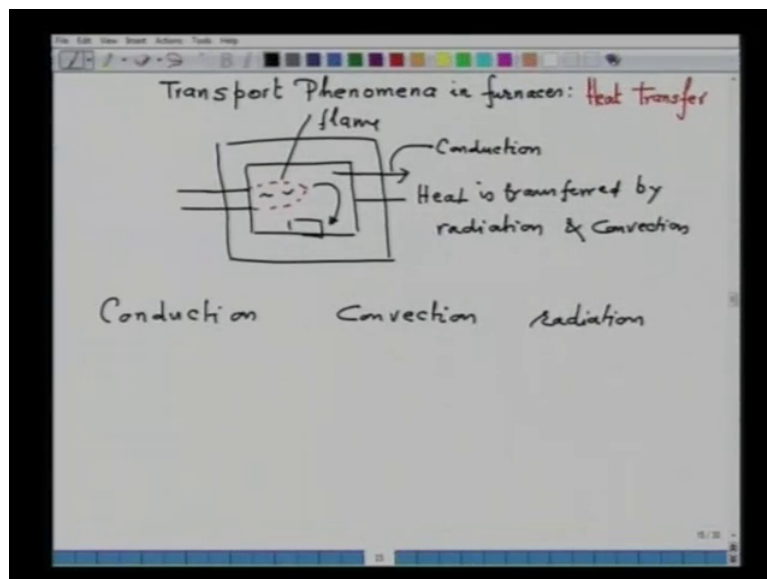 File Edit View Insert Actions Tools Help
Transport Phenomena in furnaces: Heat Transfer
flame
Conduction
Heat is transferred by
radiation & Convection
Conduction Convection radiation
15